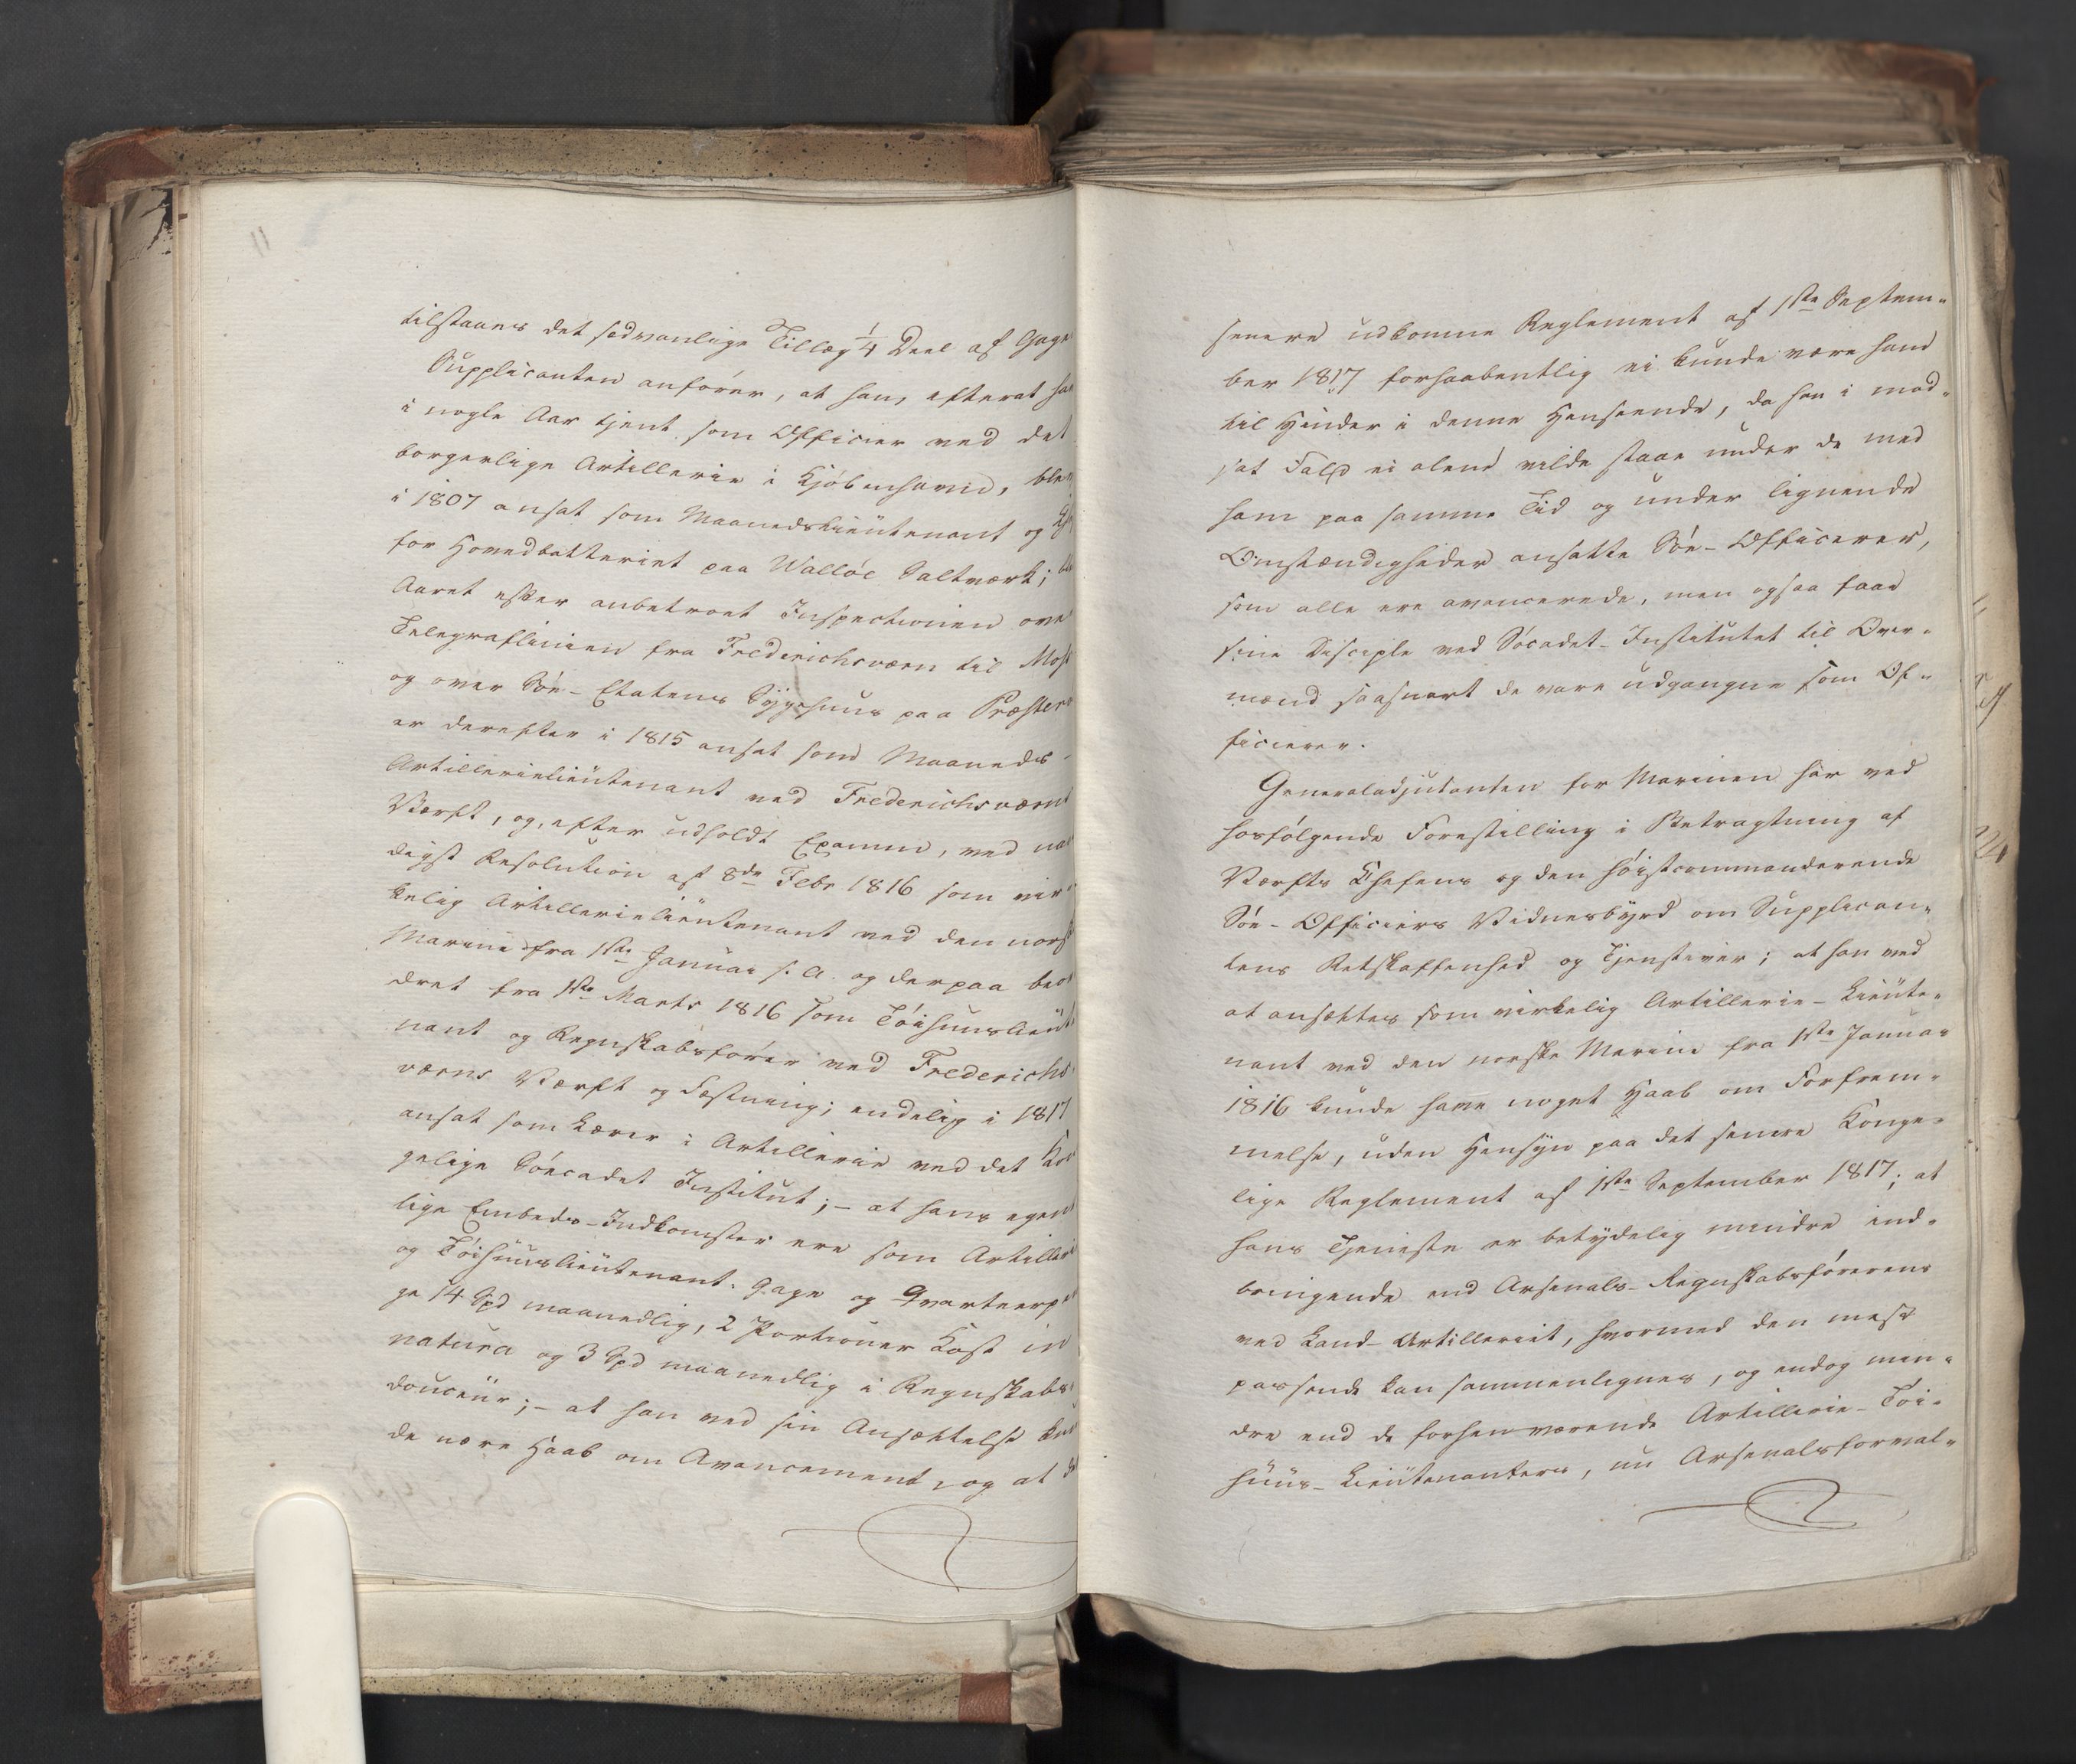 tilstaaes det sedvanlige Tillæg ¼ Deel af Gage
Supplicanten anfører, at han, efterat ha
i nogle Aar tjent som Officier ved det
borgerlige Artillerie i Kjøbenhavn, ble
i 1807 ansat som Maanedslieutenant og
for Hovedbatteriet paa Walløe Saltværk;
Aaret efter anbetroet Inspectionen ove
Telegraflinien fra Frederichsværn til Mos
og over Søe-Etatens Sygehuus paa Præster
er derefter i 1815 ansat som Maaneds-
Artillerielieutenant ved Frederichsværns
Værft, og, efter udholdt Examen, ved naa
digst Resolution af 8de Febr 1816 som vir
kelig Artillerielieutenant ved den norsk
Marine fra 1ste Januar s. A. og derpaa beor
dret fra 1ste Marts 1816 som Tøihuuslieute
nant og Regnskabsfører ved Frederichs-
værns Værft og Fæstning; endelig i 1817
ansat som Lærer i Artillerie ved det Kon
gelige Søecadet Institut; - at hans egent
lige Embeds-Indkomster ere som Artillerie
og Tøihuuslieutenant: Gage og Qvarteerp
ge 14 Spd maanedlig, 2 Portioner Kost in
natura og 3 Spd maanedlig i Regnskabs-
douceur; - at han ved sin Ansættelse kun
de nære Haab om Avancement, og at
senere udkomne Reglement af 1ste Septem-
ber 1817 forhaabentlig ei kunde være ham
til Hinder i denne Henseende, da han i mod-
sat Fald ei alene vilde staae under de med
ham paa samme Tid og under lignende
Omstændigheder ansatte Søe-Officerer,
som alle ere avancerede, men ogsaa faae
sine Disciple ved Søcadet-Institutet til Over-
mænd saasnart de vare udgangne som Of-
ficierer.
Generaladjutanten for Marinen har ved
hosfølgende Forestilling i Betragtning af
Værfts Chefens og den høistcommanderende
Søe-Officiers Vidnesbyrd om Supplican-
tens Retskaffenhed og Tjenstiver; at han ved
at ansættes som virkelig Artillerie-Lieute-
nant ved den norske Marine fra 1ste Januar
1816 kunde have noget Haab om Forfrem-
melse, uden Hensyn paa det senere Konge-
lige Reglement af 1ste September 1817; at
hans Tjeneste er betydelig mindre ind-
bringende end Arsenals-Regnskabsførerens
ved Land-Artilleriet, hvormed den mest
passende kan sammenlignes, og endog min-
dre end de forhenværende Artillerie-Tøi-
huus-Lieutenanters, nu Arsenalsforval-